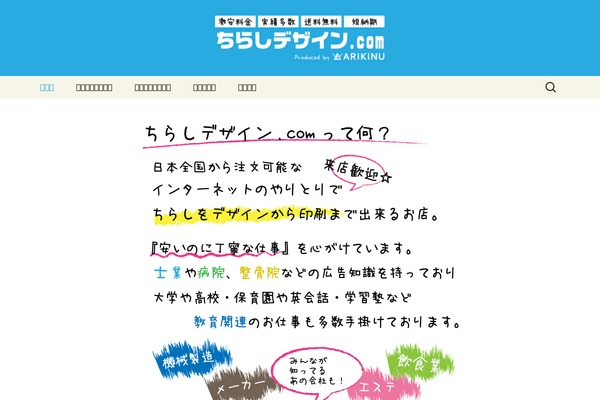 激安料金 実績多数 送料無料 短納期
ちらしデザイン.com
Produced by ARiKiNU
ちらしデザイン.comって何？
日本全国から注文可能な 来店歓迎☆
インターネットのやりとりで
ちらしをデザインから印刷まで出来るお店。
『安いのに丁寧な仕事』を心がけています。
士業や病院、整骨院などの広告知識を持っており
大学や高校・保育園や英会話・学習塾など
教育関連のお仕事も多数手掛けております。
機械製造
みんなが
知ってる
あの会社も！
飲食業
メーカー
エステ